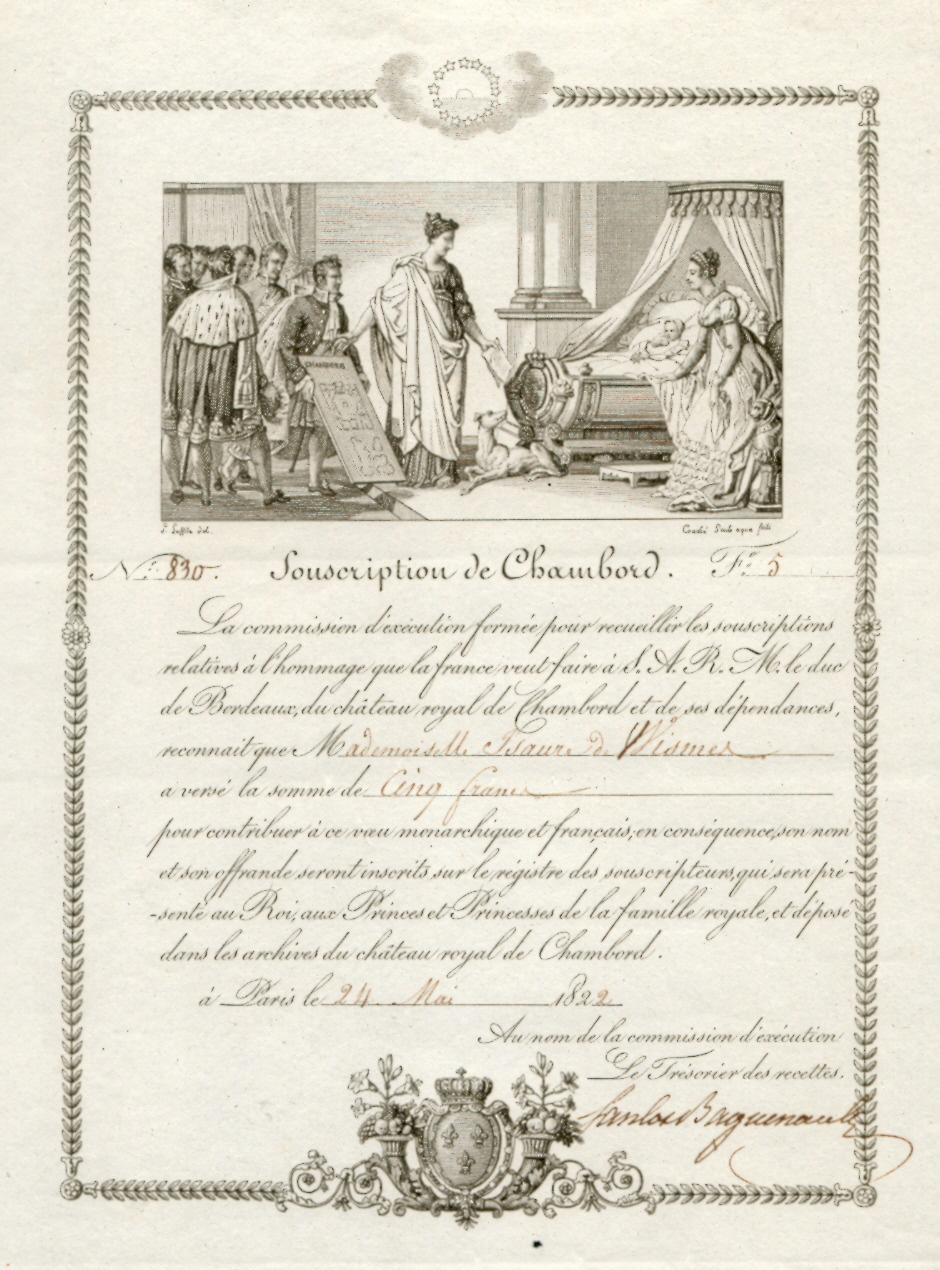 CHAMBORD
del.
Couché Sculp. aqua forti
N.º 830. Souscription de Chambord. Fr. 5
La commission d'exécution formée pour recueillir les souscriptions
relatives à l'hommage que la france veut faire à S. A. R. M. le duc
de Bordeaux, du château royal de Chambord et de ses dépendances,
reconnait que Mademoiselle Isaure de Wismes
a versé la somme de Cinq francs
pour contribuer à ce vœu monarchique et français; en conséquence, son nom
et son offrande seront inscrits sur le régistre des souscripteurs, qui sera pré-
-senté au Roi, aux Princes et Princesses de la famille royale, et déposé
dans les archives du château royal de Chambord.
à Paris le 24 Mai 1822
Au nom de la commission d'exécution
Le Trésorier des recettes.
Baguenault